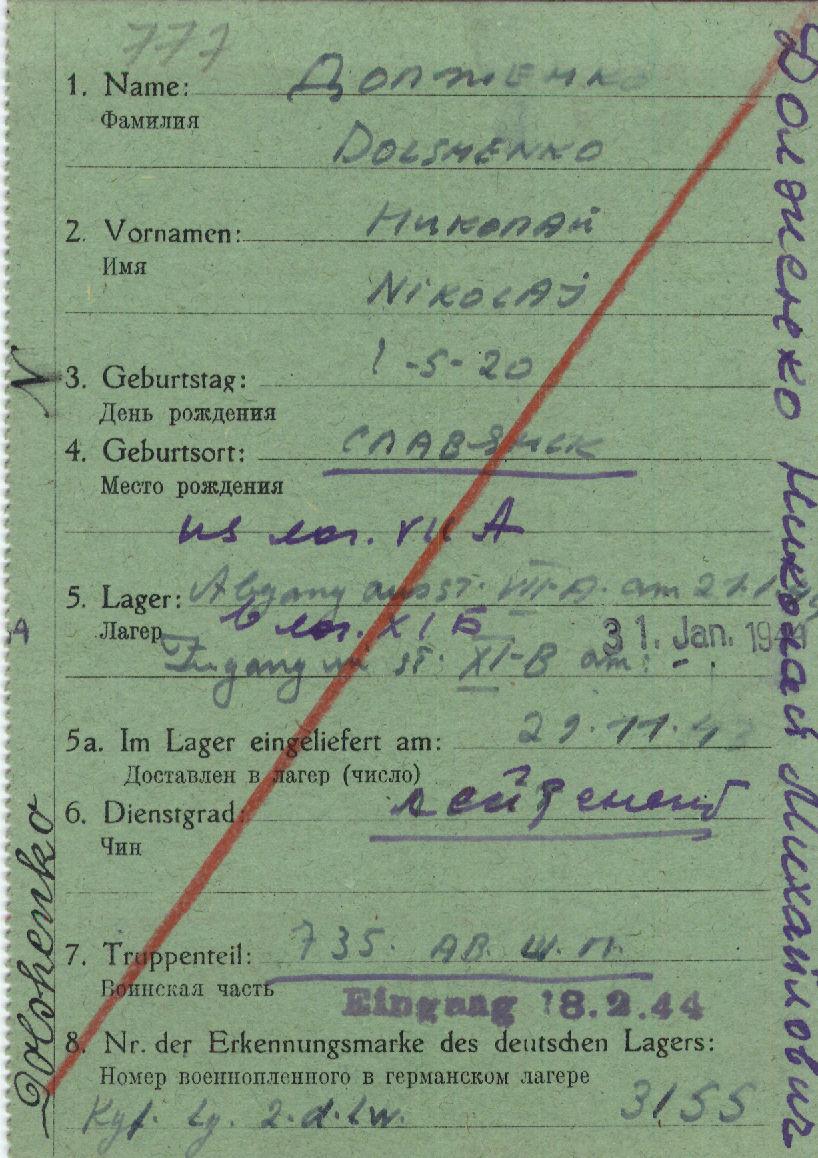 777
1. Name: Долженко
Фамилия
DOLSHENKO
2. Vornamen: Николай
Имя
NIKOLAJ
3. Geburtstag: 1-5-20
День рождения
4. Geburtsort: Славянск
Место рождения
из лаг. VII A
5. Lager: Abgang aus st. VII-A. am
Лагер в лаг. XI Б 31. Jan. 1944
Zugang in st. XI-B am:
5a. Im Lager eingeliefert am: 29.11.43
Доставлен в лагер (число)
6. Dienstgrad: лейтенант
Чин
7. Truppenteil: 735. АВ. Ш. П.
Воинская часть
Eingang 18.2.44
8. Nr. der Erkennungsmarke des deutschen Lagers:
Номер военнопленного в германском лагере
Kgf. Lg. 2. d. Lw. 3155
Долженко Николай Михайлович
N
Dolshenko